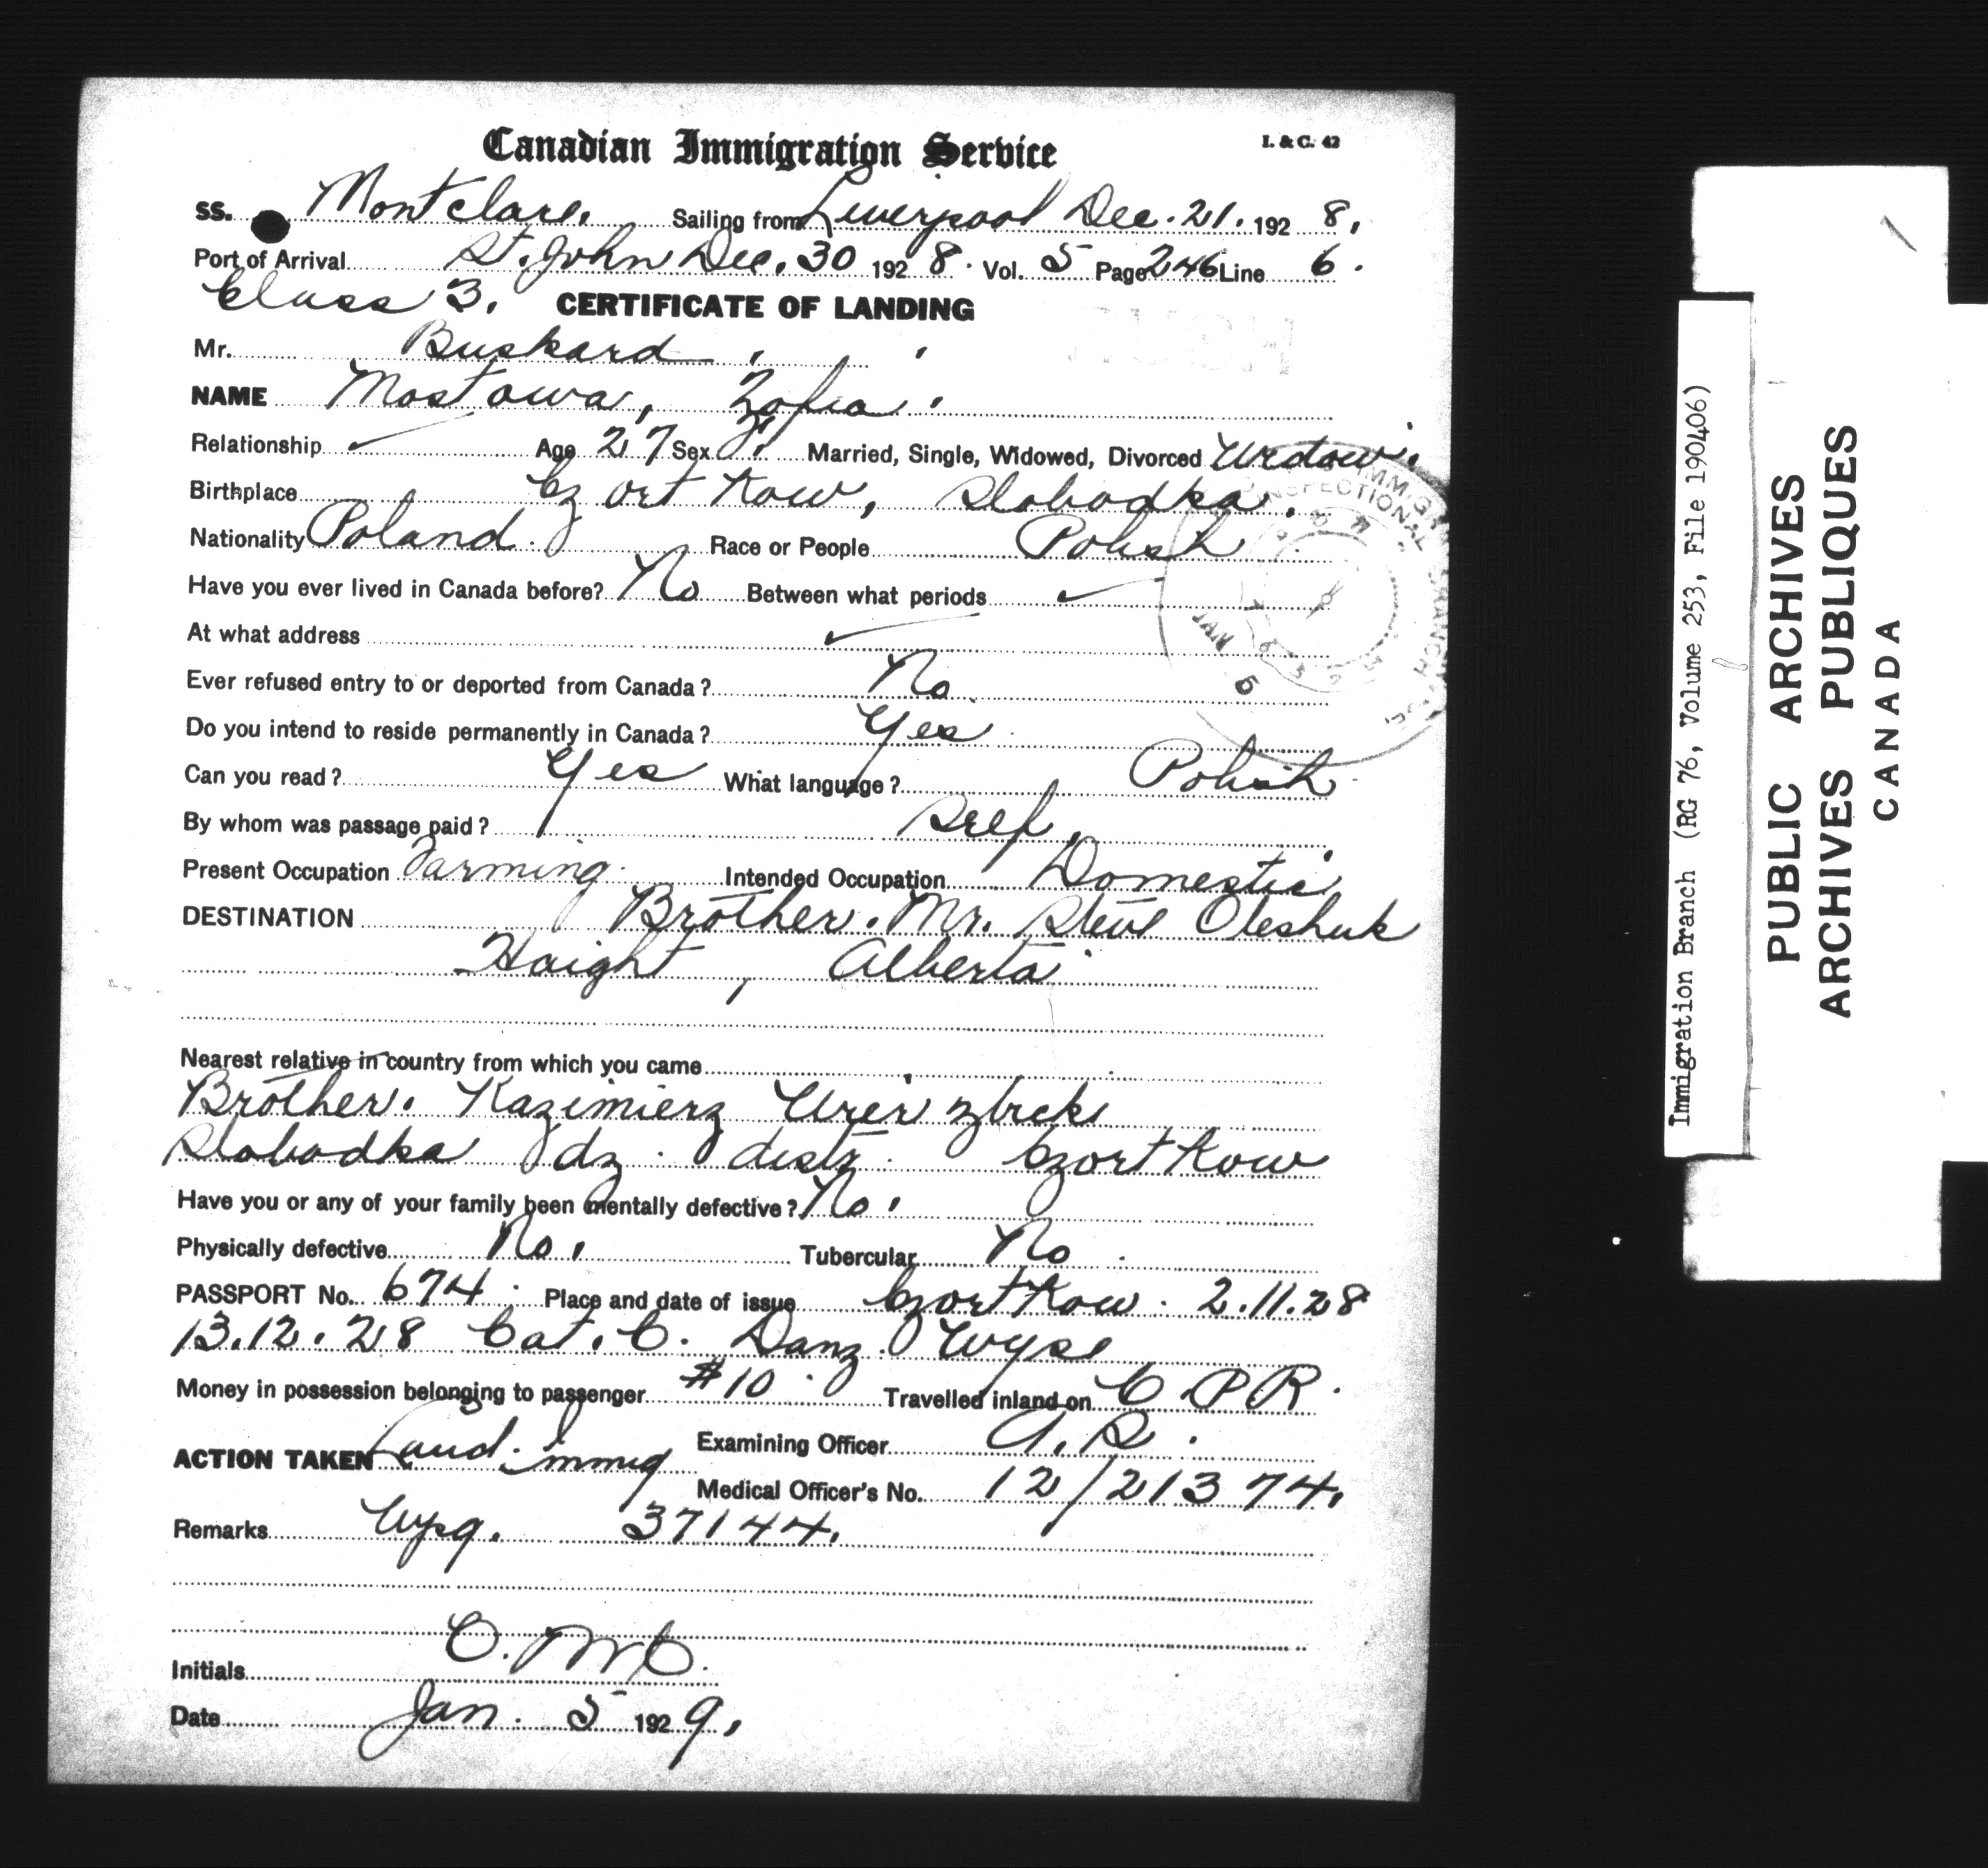 Canadian Immigration Service
I. & C. 42
SS. Montclare. Sailing from Liverpool Dec. 21. 192 8.
Port of Arrival St. John Dec. 30 192 8. Vol. 5 Page 246 Line 6.
Class 3. CERTIFICATE OF LANDING
Mr. Buskard,
NAME Mostowa, Zofia.
Relationship Age 27 Sex F. Married, Single, Widowed, Divorced Widow.
Birthplace Czortkow, Slobodka.
Nationality Poland. Race or People Polish
Have you ever lived in Canada before? No Between what periods
At what address
Ever refused entry to or deported from Canada? No
Do you intend to reside permanently in Canada? Yes
Can you read? Yes What language? Polish
By whom was passage paid? Self.
Present Occupation Farming. Intended Occupation Domestic
DESTINATION Brother. Mr. Steve Oleshuk
Haight, Alberta
Nearest relative in country from which you came
Brother. Kazimierz
Slobodka dz. distr. Czortkow
Have you or any of your family been mentally defective? No.
Physically defective No. Tubercular No.
PASSPORT No. 674. Place and date of issue Czortkow. 2.11.28
13.12.28 Cat. C. Danz. Wyse
Money in possession belonging to passenger $10. Travelled inland on C.P.R.
ACTION TAKEN Land. Immig Examining Officer
Medical Officer's No. 12/21374.
Remarks Wpg. 37144.
Initials
Date Jan. 5 192 9.
JAN 5
Immigration Branch (RG 76, Volume 253, File 190406)
PUBLIC ARCHIVES
ARCHIVES PUBLIQUES
CANADA